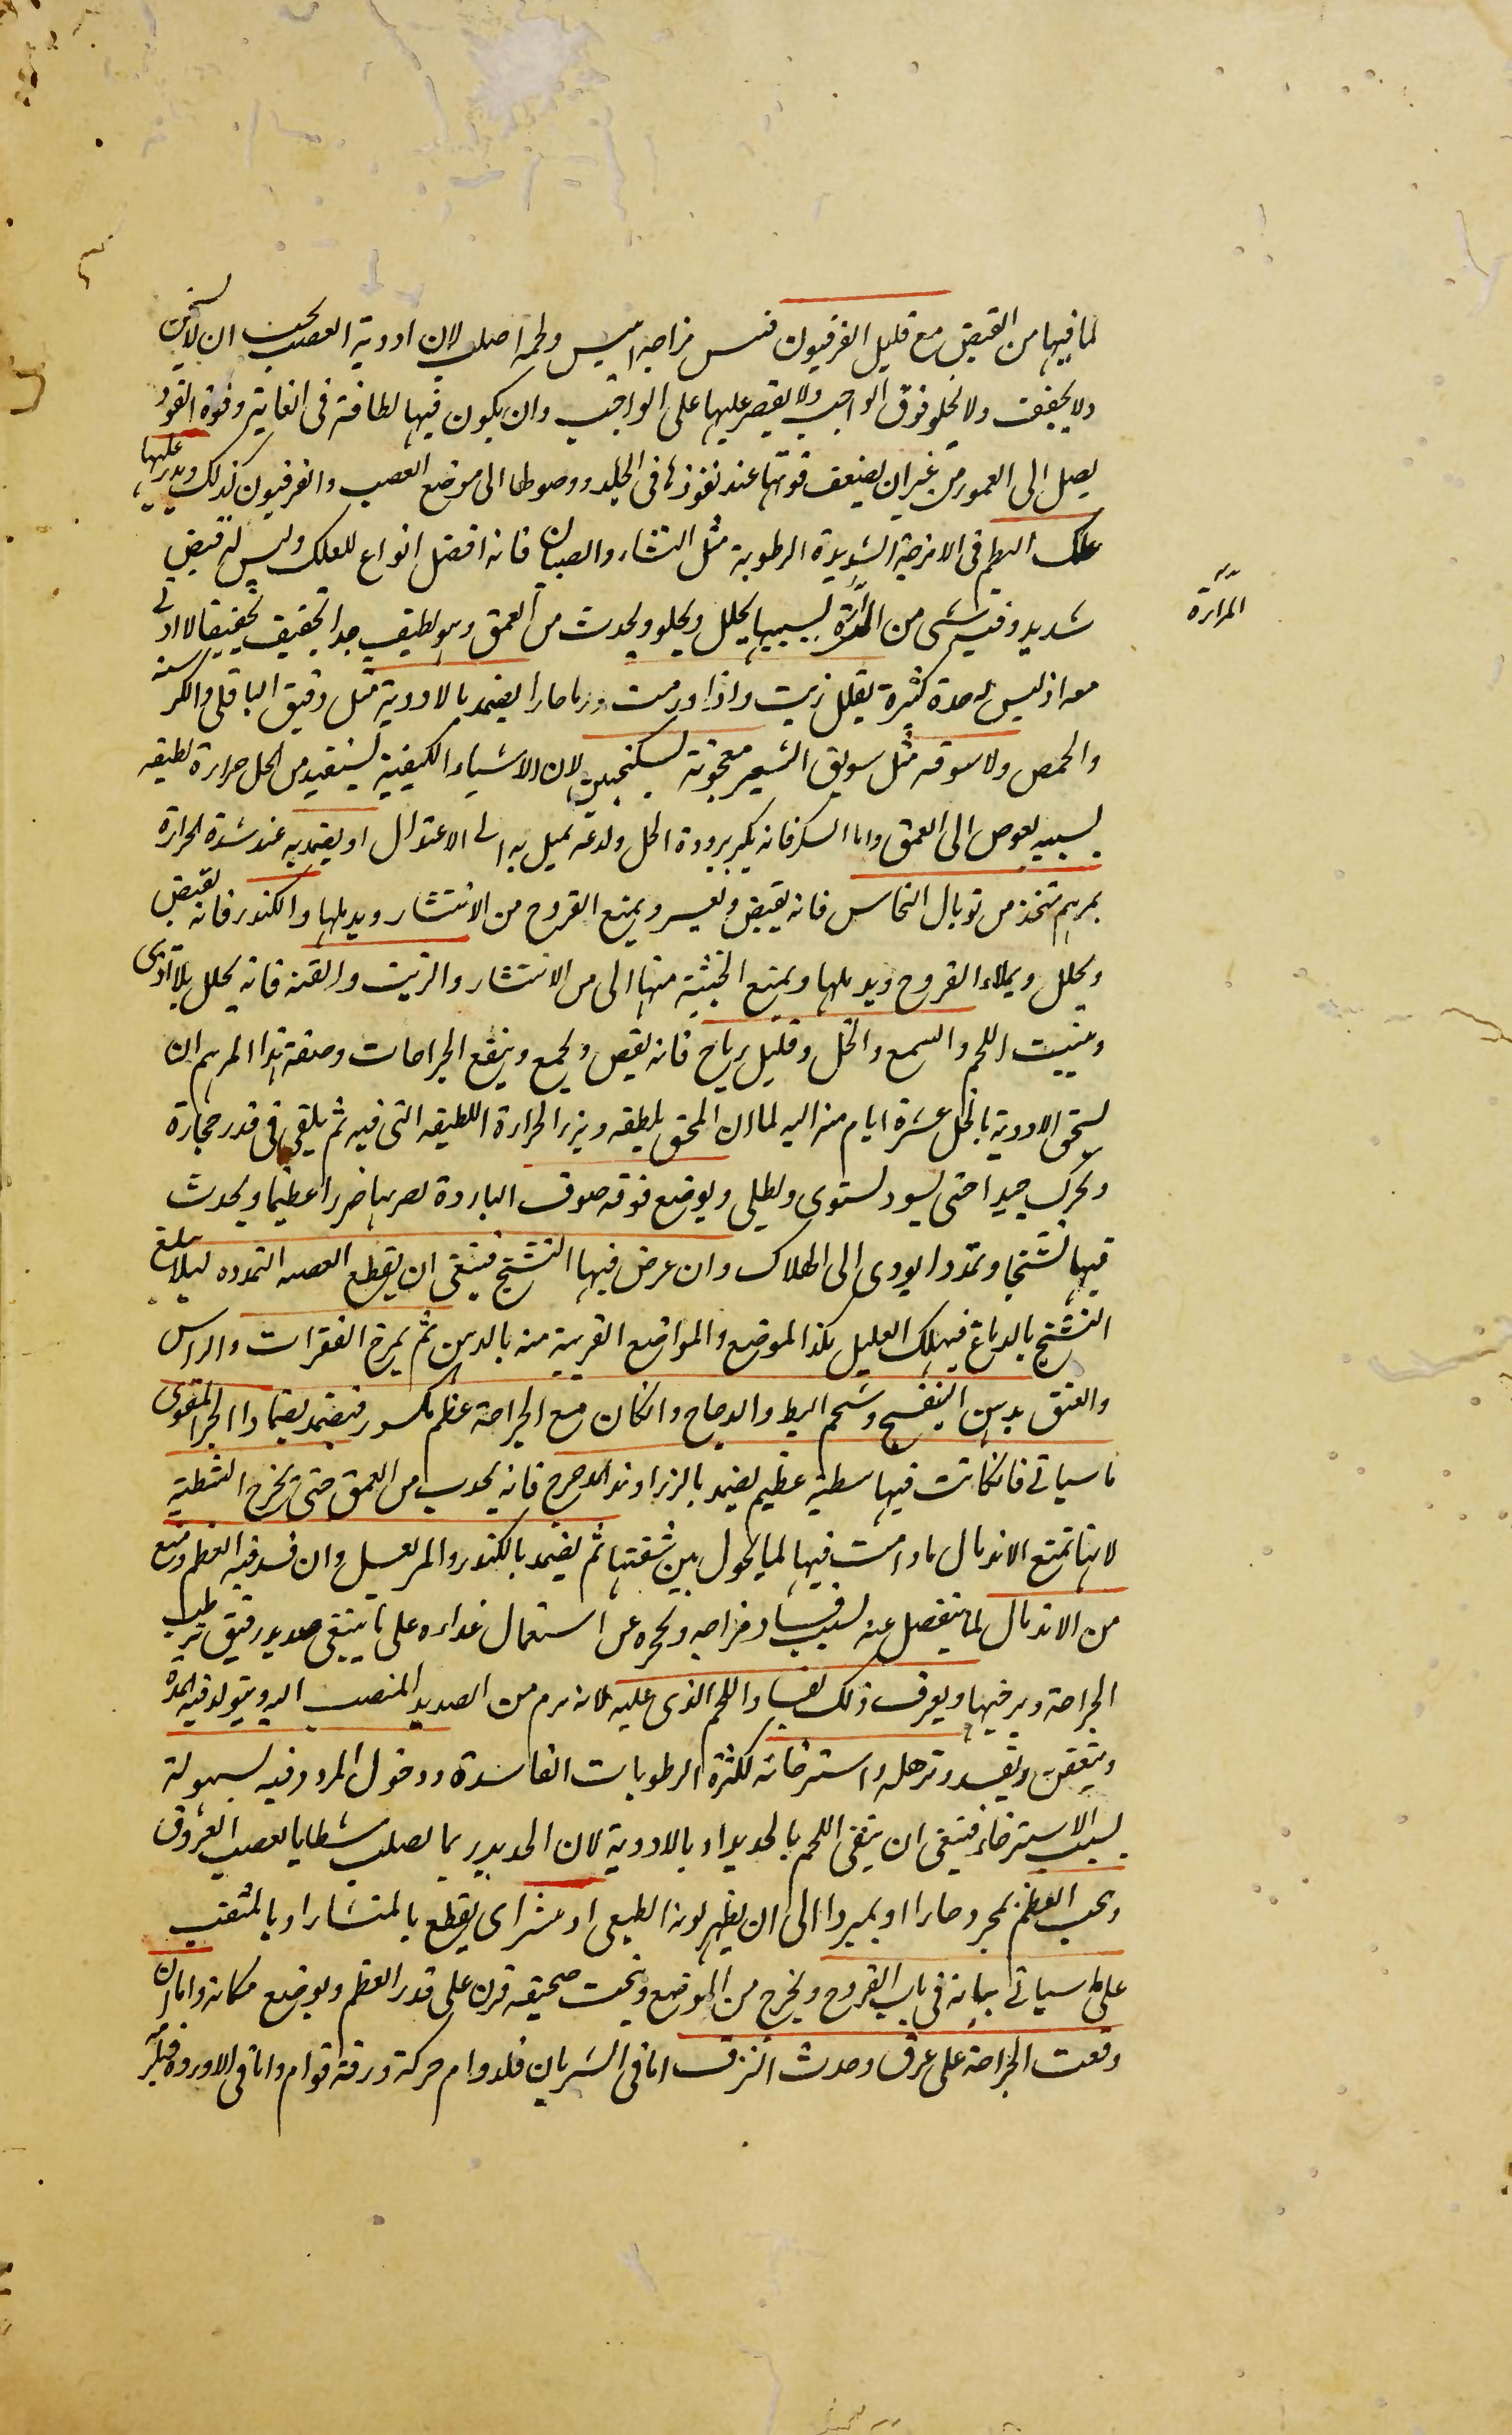 لما فيها من القبض مع قليل الفرفيون فيمن مزاجه ايبس ولحمه اصلب لان ادوية العصب يجب ان لا يسخن
ولا يجفف ولا يجلو فوق الواجب ولا يقصر عليها على الواجب وان يكون فيها لطافة فى الغاية وقوة النفوذ
يصل الى العمور من غير ان يضعف قوتها عند نفوذها فى الجلد ووصولها الى موضع العصب والفرفيون كذلك ويدر عليها
علك البطم فى الامزجة الشديدة الرطوبة مثل النشاء والصبيان فانه افضل انواع للعلك وليس له قبض
شديد وفيه شى من المرارة بسببها يحلل ويجلو ويحدث من العمق وهو لطيف جدا يجفف تجفيفا لا اذى
معه اذ ليس له حدة كثيرة بقليل زيت واذا ورمت ورما حارا يضمد بالادوية مثل دقيق الباقلى والكرسنه
والحمص ولا سوقه مثل سويق الشعير معجونة بسكنجبين لان الاشياء الكيفية يستفيد من الخل حرارة لطيفه
بسببه يغوص الى العمق واما السكر فانه يكسر برودة الخل ولدغه يميل به الى الاعتدال او يضمد به عند شدة الحرارة
بمرهم متخذ من توبال النحاس فانه يقبض ويعسر ويمنع القروح من الانتشار ويدملها والكندر فانه يقبض
ويحلل ويملاء القروح ويدملها ويمنع الخبيثة منها الى من الانتشار والزيت والقنه فانه يحلل بلا اذى
ومنبت اللحم والشمع والخل وقليل رياح فانه يقبض ويجمع وينفع الجراحات وصفة هذا المرهم ان
يسحق الادوية بالخل عشرة ايام منه اليه لما ان السحق يلطفه ويزيد الحرارة اللطيفه التى فيه ثم يلقى فى قدر حجارة
ويحرك جيدا حتى يسود يستوى ويطلى ويوضع فوقه صوف الباردة يضر بها ضررا عظيما ويحدث
فيها تشنجا وتمددا يودى الى الهلاك وان عرض فيها التشنج فينبغى ان يقطع العصبه المتمدده ليلا يبلغ
التشنج بالدماغ فيهلك العليل بكذا الموضع والمواضع القريبة منه بالدهن ثم يمرخ الفقرات والراس
والعنق بدهن البنفسج وشحم البط والدجاج وان كان مع الجراحة عظم مكسور فيضمد بضماد الجبر المقوى
ما سياتى فان كانت فيها شظية عظيم يضمد بالزراوند المدحرج فانه يجدب من العمق حتى يخرج الشظية
لانها تمنع الاندمال ما دامت فيها لما يحول بين شفتيها ثم يضمد بالكندر والمر بعسل وان فسد فيه العظم ومنع
من الاندمال لما ينفصل عنه بسبب فساد مزاجه وعجزه عن استعمال غداءه على ما ينبغى صديد رقيق يرطب
الجراحة ويرخيها ويعرف ذلك بفساد اللحم الذى عليه لانه يرم من الصديد المنصب اليه ويتولد فيه المدة
ويتعفن ويفسد وترهله واسترخائه لكثرة الرطوبات الفاسدة ودخول المرود فيه بسهولة
بسبب الاسترخاء فينبغى ان ينقى اللحم بالحديد او بالادوية لان الحديد ربما يصلب شظايا العصب العروق
ويحك العظم بمجرد حارا او بمبرد الى ان يظهر لونه الطبيعى او ينشر اى يقطع بالمنشار او بالمثقب
على ما سياتى بيانه فى باب القروح ويخرج من الموضع وينحت صحيفه قرن على قدر العظم ويوضع مكانه واما ان
وقعت الجراحة على عرق وحدث النزف اما فى الشريان فلدوام حركة ورقة قوام واما فى الاوردة
المرارة